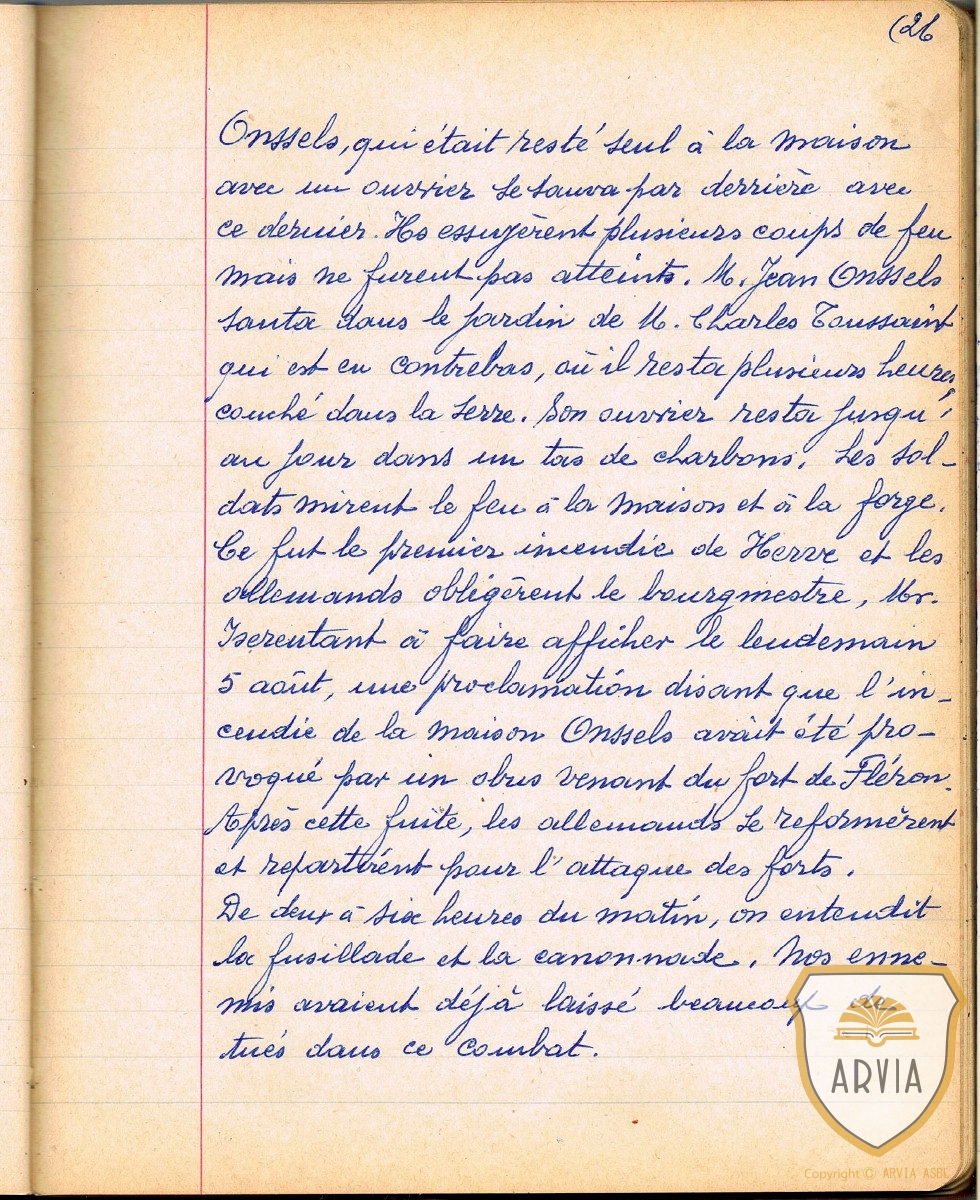 (26
Onssels, qui était resté seul à la maison
avec un ouvrier se sauva par derrière avec
ce dernier. Ils essuyèrent plusieurs coups de feu
mais ne furent pas atteints. M. Jean Onssels
sauta dans le jardin de M. Charles Toussaint
qui est en contrebas, où il resta plusieurs heures,
couché dans la serre. Son ouvrier resta jusqu'
au jour dans un tas de charbons. Les sol-
dats mirent le feu à la maison et à la forge.
Ce fut le premier incendie de Herve et les
allemands obligèrent le bourgmestre, Mr.
Iserentant à faire afficher le lendemain
5 août, une proclamation disant que l'in-
cendie de la maison Onssels avait été pro-
voqué par un obus venant du fort de Fléron.
Après cette fuite, les allemands se reformèrent
et repartirent pour l'attaque des forts.
De deux à six heures du matin, on entendit
la fusillade et la canonnade. Nos enne-
mis avaient déjà laissé beaucoup de
tués dans ce combat.
ARVIA
Copyright © ARVIA ASBL